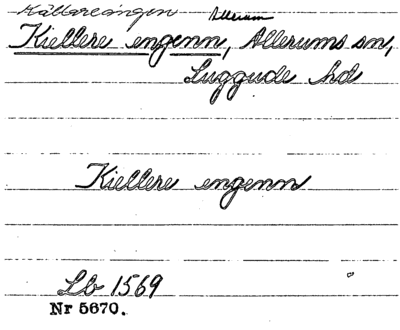 Källareängen Allerum
Kiellere engenn, Allerums sn,
Luggude hd
Kiellere engenn
Lb 1569
Nr 5670.